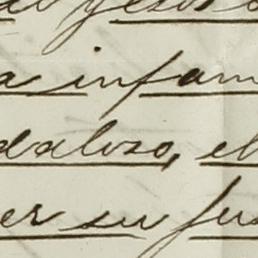 a infam
daloso, el
er su fus